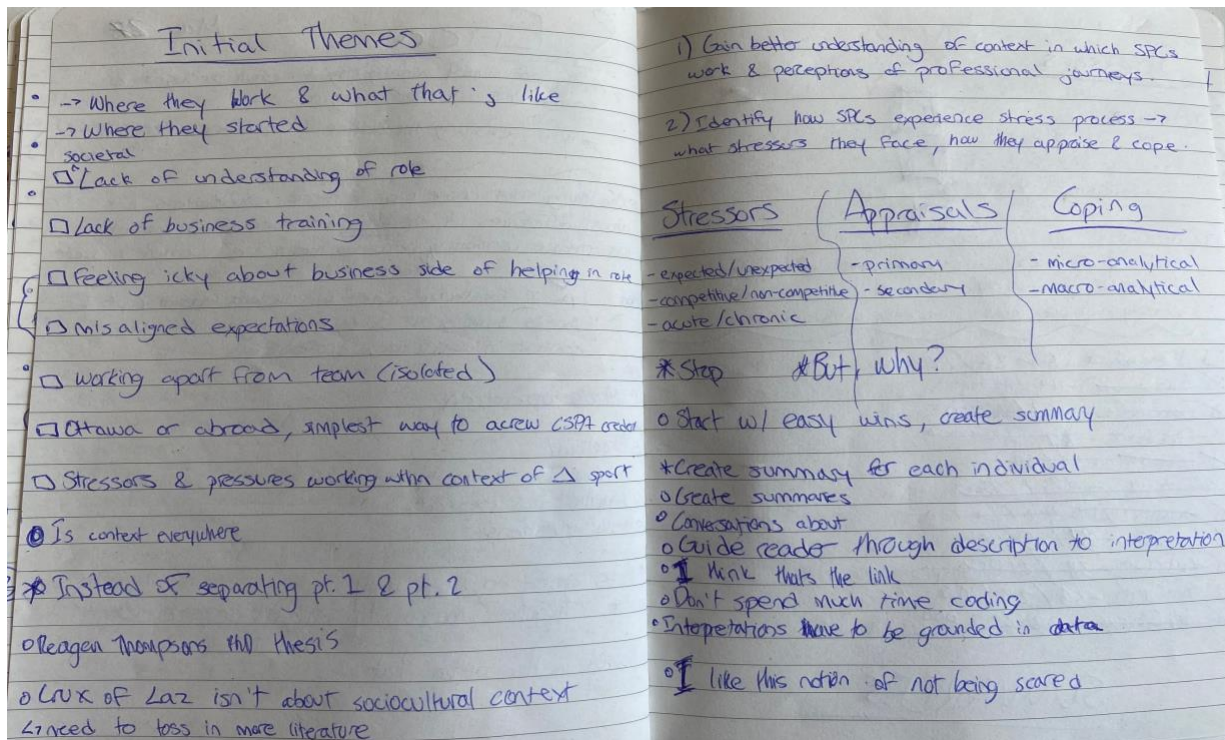 Initial Themes
-> Where they Work & what that's like
-> Where they started
societal
□ ^Lack of understanding of role
□ Lack of business training
□ Feeling icky about business side of helping in role
□ misaligned expectations
□ working apart from team (isolated)
□ Ottawa or abroad, simplest way to acrew CSPA
□ Stressors & pressures working within context of Δ sport
o Is context everywhere
* Instead of separating pt. 1 & pt. 2
o Reagen Thompsons PhD thesis
o Crux of Laz isn't about sociocultural context
↳ need to toss in more literature
1) Gain better understanding of context in which SPCs
work & perceptions of professional journeys.
2) Identify how SPCs experience stress process ->
what stressors they face, how they appraise & cope.
Stressors Appraisals Coping
- expected/unexpected - primary - micro-analytical
- competitive/non-competitive - secondary - macro-analytical
- acute/chronic
* Stop * But, why?
o Start w/ easy wins, create summary
* Create summary for each individual
o Create summaries
o Conversations about
o Guide reader through description to interpretation
o I think thats the link
o Don't spend much time coding
o Intepretations have to be grounded in data
o I like this notion of not being scared